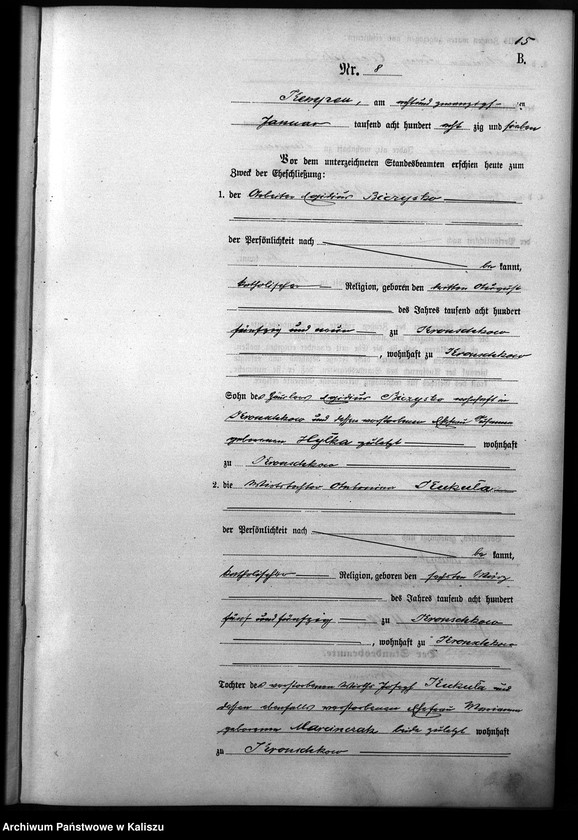 15
B.
Nr. 8
Kempen, am achtundzwanzigsten
Januar tausend acht hundert achtzig und sieben
Vor dem unterzeichneten Standesbeamten erschien heute zum
Zweck der Eheschließung:
1. der Arbeiter Biczysko
der Persönlichkeit nach
be kannt,
katholischer Religion, geboren den dritten August
des Jahres tausend acht hundert
fünfzig und neun zu
, wohnhaft zu
Sohn des Häuslers Biczysko wohnhaft in
und dessen verstorbenen Ehefrau
geborenen Hylka zuletzt wohnhaft
zu
2. die Wirthstochter Antonina Kukuła
der Persönlichkeit nach
be kannt,
katholischer Religion, geboren den März
des Jahres tausend acht hundert
fünf und fünfzig zu
, wohnhaft zu
Tochter des verstorbenen Wirths Josef Kukuła und
dessen ebenfalls verstorbenen Ehefrau Marianna
geborenen Marciniak beide zuletzt wohnhaft
zu
Archiwum Państwowe w Kaliszu